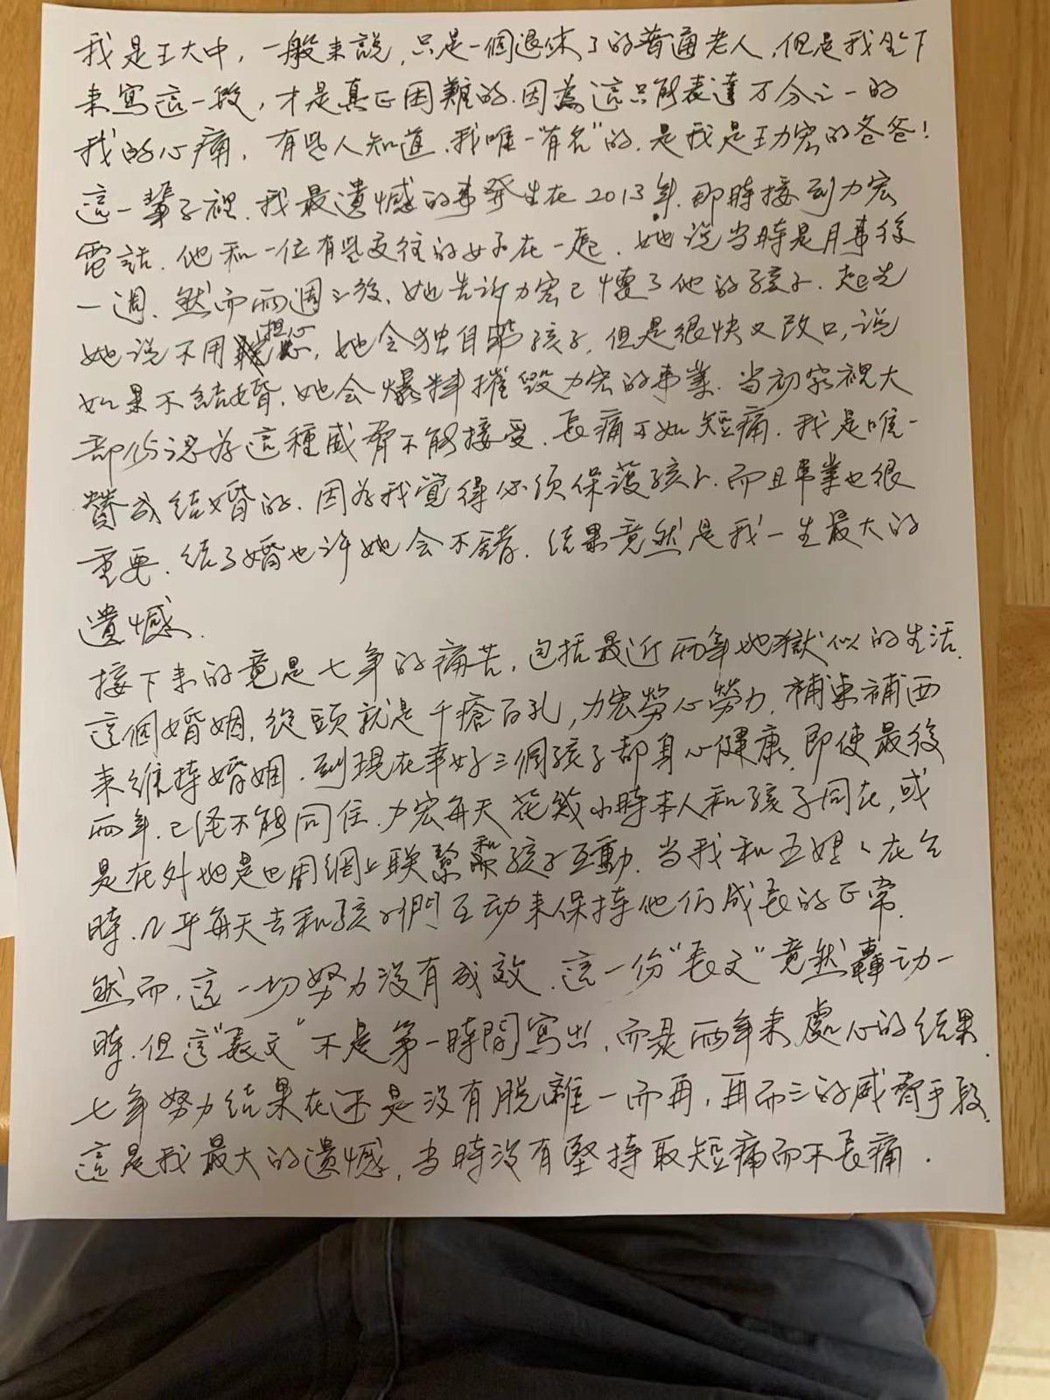 我是王大中，一般来說，只是一個退休了的普通老人，但是我坐下
来寫這一段，才是真正困難的．因為這只能表達万分之一的
我的心痛．有些人知道．我唯一"有名"的．是我是王力宏的爸爸！
這一輩子裡．我最遺憾的事発生在2013年．那時接到力宏
電話．他和一位有些交往的女子在一起．她说当時是月事後
一週．然而兩週之後．她告诉力宏已懷了他的孩子．起先
她说不用担心，她会独自帶孩子．但是很快又改口，说
如果不結婚．她会爆料摧毀力宏的事業．当初家裡大
部份認為這種威脅不能接受．長痛不如短痛．我是唯一
贊成結婚的．因為我覺得必须保護孩子．而且事業也很
重要．结了婚也许她会不錯．结果竟然是我一生最大的
遺憾．
接下来的竟是七年的痛苦，包括最近兩年地獄似的生活．
這個婚姻．從頭就是千瘡百孔，力宏勞心勞力．補東補西
来維持婚姻．到現在幸好三個孩子都身心健康．即使最後
兩年．已经不能同住．力宏每天花幾小時本人和孩子同在，或
是在外地是也用網上联繫和孩子互動．当我和王媽媽在台
時．几乎每天去和孩子們互动来保持他们成長的正常．
然而，這一切努力没有成效．這一份"長文"竟然轟动一
時．但這"長文"不是第一時間寫出，而是兩年来處心的结果．
七年努力结果在还是没有脱離一而再，再而三的威脅手段．
這是我最大的遺憾．当時没有堅持取短痛而不長痛．